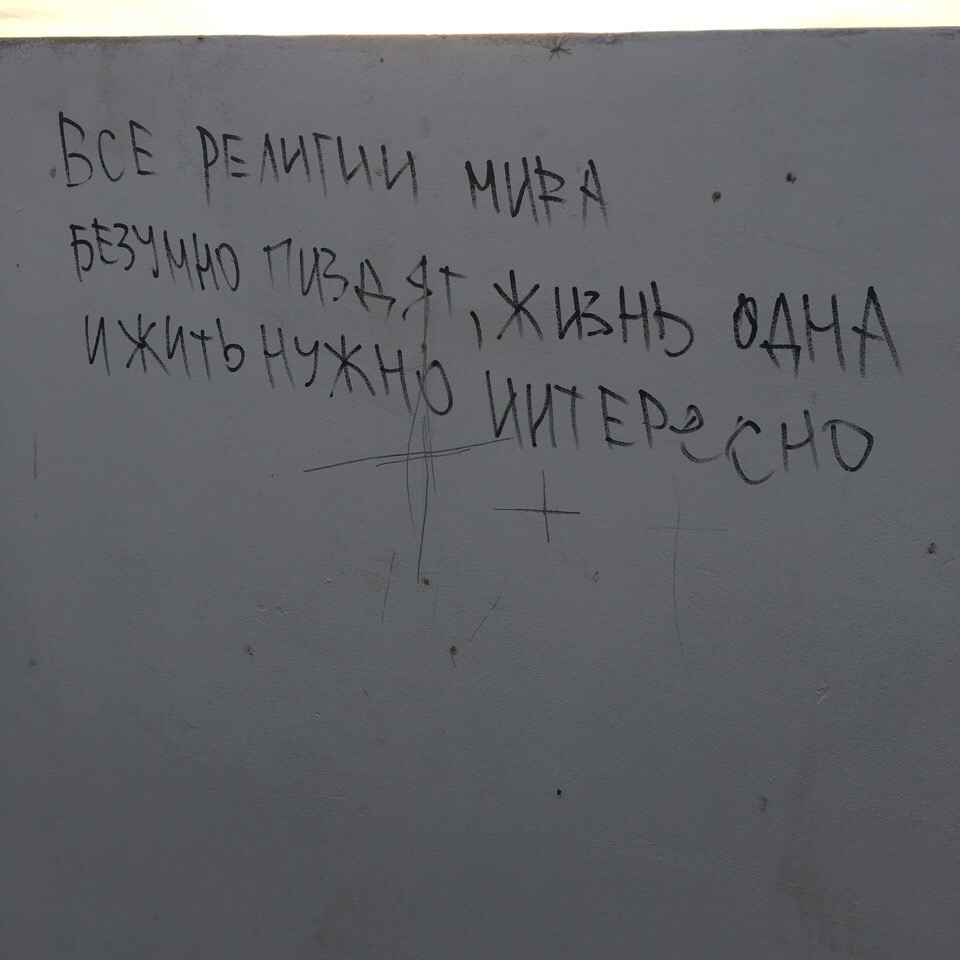 ВСЕ РЕЛИГИИ МИРА
БЕЗУМНО ПИЗДЯТ, ЖИЗНЬ ОДНА
И ЖИТЬ НУЖНО ИНТЕРЕСНО